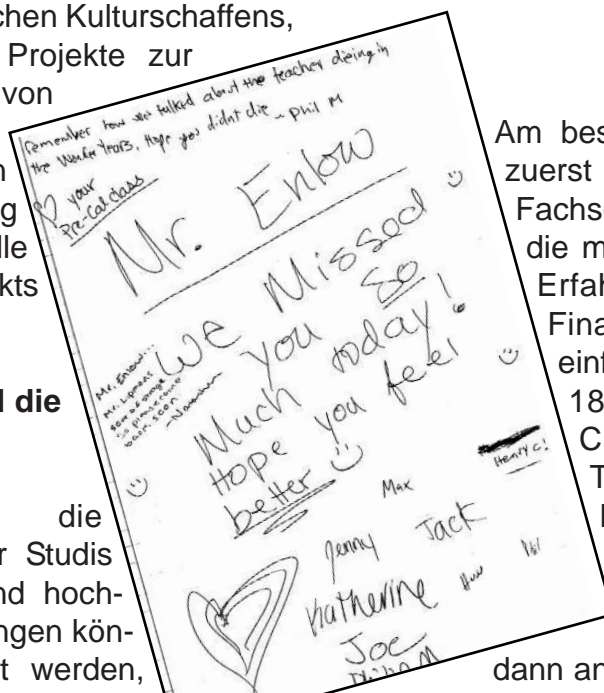 chen Kulturschaffens,
Projekte zur
von
n
g
lle
kts
l die
die
r Studis
nd hoch-
ngen kön-
t werden,
Remember how we talked about the teacher dieing in
the Wonder Years, Hope you didnt die ~ Phil M
♡ your
Pre-Cal class
Mr. Enlow
We Missed
you So
Much today!
Hope you feel
better
Mr. Enlow...
so please come
back soon
Henry C!
Max
Jenny Jack
Katherine
Joe
Am bes
zuerst
Fachs
die m
Erfah
Fina
einf
18
C
T
dann an